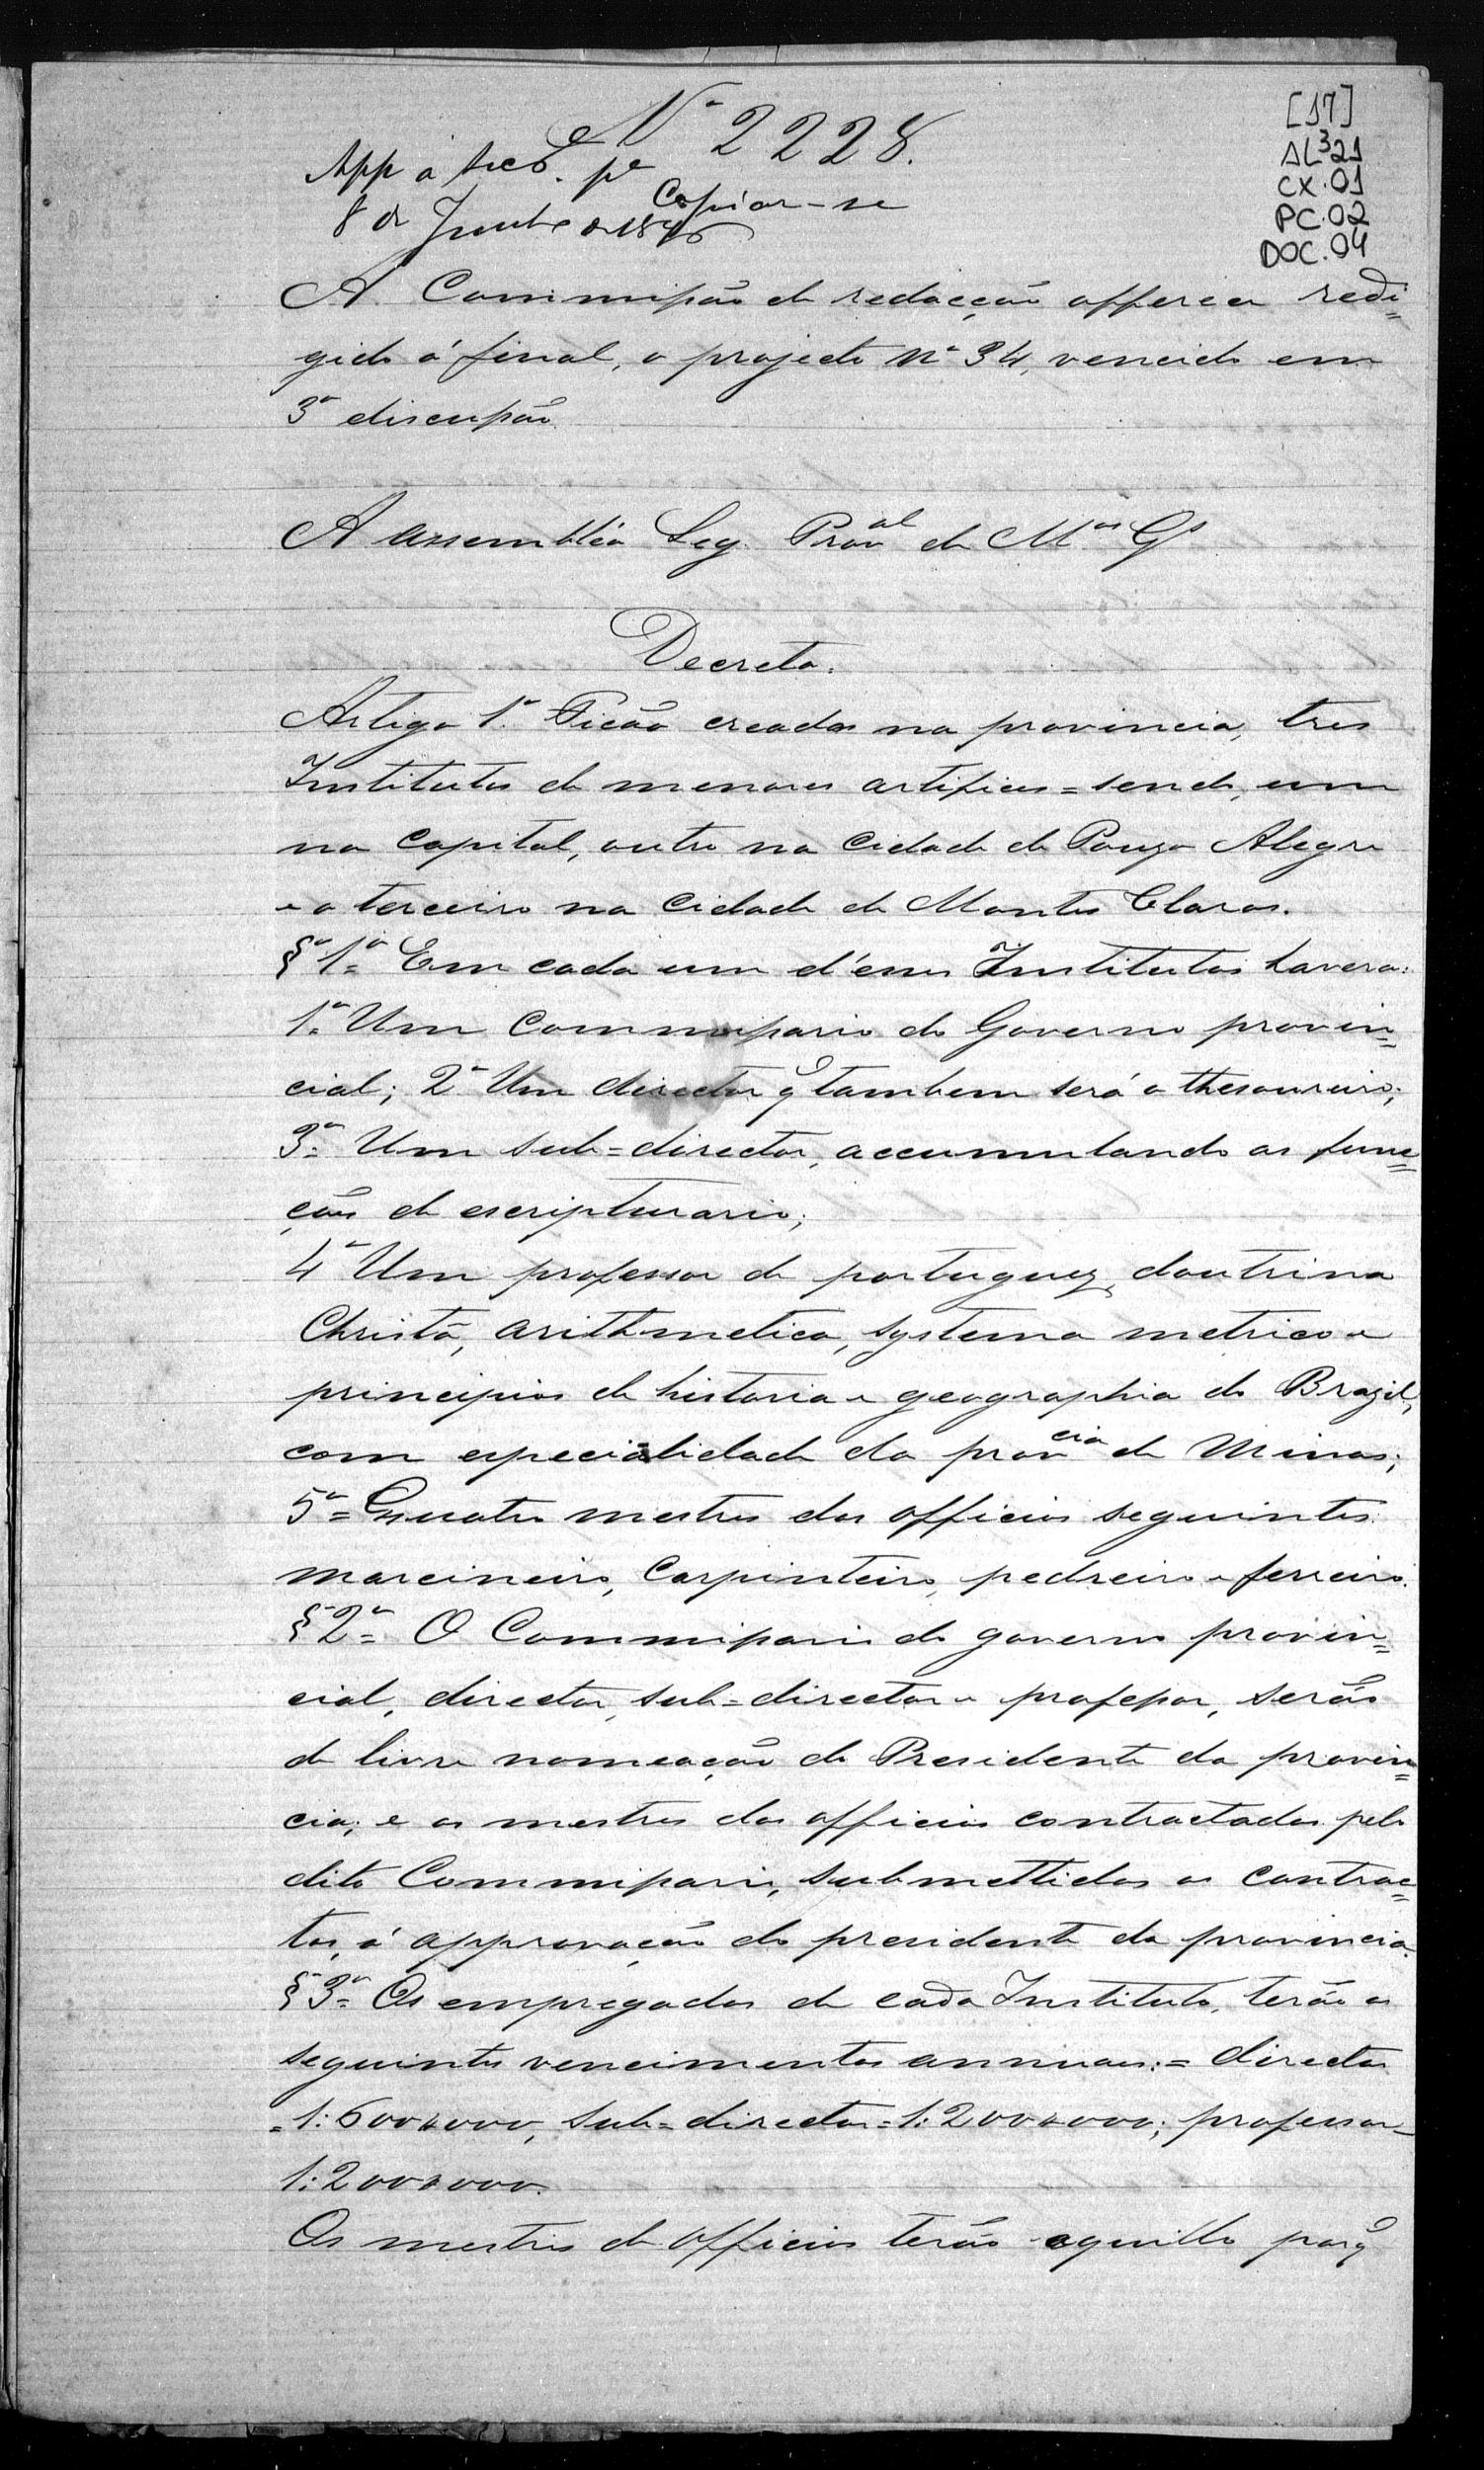 Nº 2228.
[17]
AL³21
CX.01
PC.02
DOC.04
App à Sec. pª
Copiar-se
8 de Junho de 1876
A Commissão de redacção offerece redi=
gido á final, o projecto nº 34, vencido em
3ª discussão
A assembléa Leg. Prov.al de M.as G.s
Decreta:
Artigo 1º Ficão creados na provincia, tres
Institutos de menores artifices = sendo, um
na Capital, outro na Cidade de Pouzo Alegre
e o terceiro na Cidade de Montes Claros.
§ 1º= Em cada um d'esses Institutos haverá:
1º Um Commissario do Governo provin=
cial; 2º Um director q̃ tambem será o thesoureiro;
3º= Um sub=director, accumulando as func=
ções de escripturario;
4º Um professor de portuguez, doutrina
Christã, arithmetica, systema metrico e
principios de historia e geographia do Brazil,
com especialidade da prov.cia de Minas;
5º= Quatro mestres dos officios seguintes:
marcineiro, Carpinteiro, pedreiro e ferreiro.
§ 2º= O Commissario do governo provin=
cial, director, sub=director e professor, serão
de livre nomeação do Presidente da provin=
cia; e os mestres dos officios contractados pelo
dito Commissario, submettidos os contrac=
tos, á approvação do presidente da provincia.
§ 3º= Os empregados de cada Instituto, terão os
seguintes vencimentos annuaes:= director
=1:600$000, sub=director=1:200$000; professor=
1:200$000.
Os mestres de officios terão aquillo porq̃